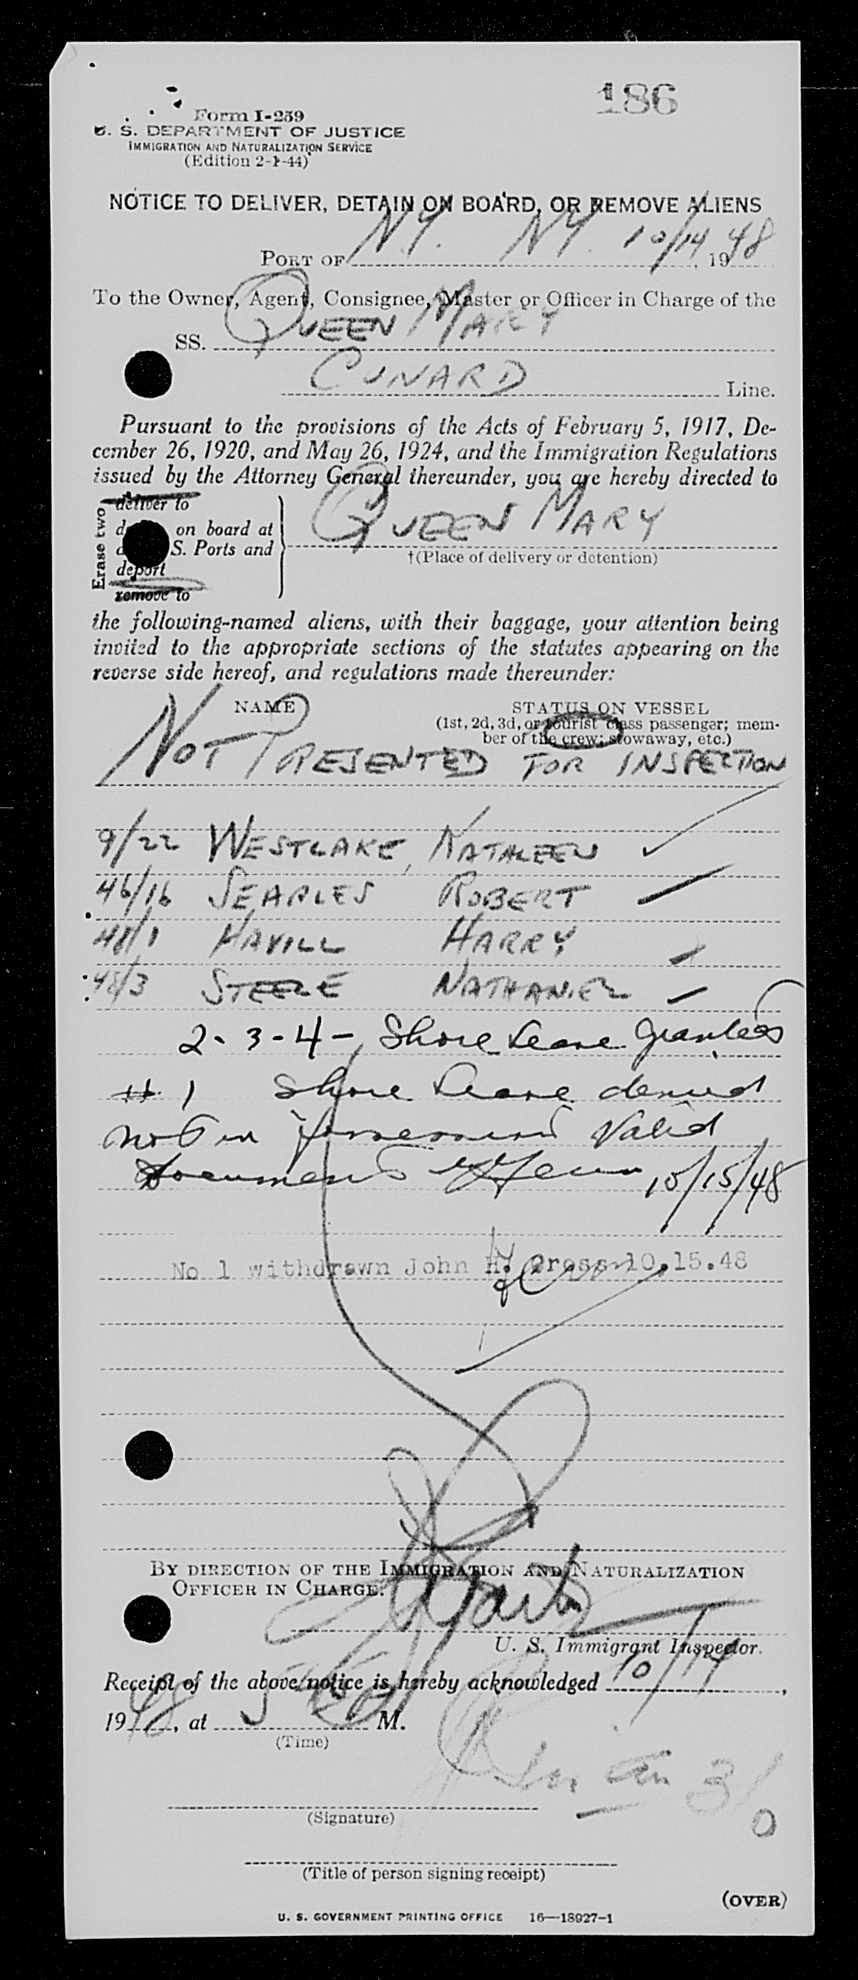 186
Form I-259
U. S. DEPARTMENT OF JUSTICE
IMMIGRATION AND NATURALIZATION SERVICE
(Edition 2-1-44)
NOTICE TO DELIVER, DETAIN ON BOARD, OR REMOVE ALIENS
PORT OF N.Y. N.Y. 10/14, 1948
To the Owner, Agent, Consignee, Master or Officer in Charge of the
SS. QUEEN MARY
CUNARD Line.
Pursuant to the provisions of the Acts of February 5, 1917, De-
cember 26, 1920, and May 26, 1924, and the Immigration Regulations
issued by the Attorney General thereunder, you are hereby directed to
Erase two
deliver to
on board at
S. Ports and
deport
remove to
QUEEN MARY
†(Place of delivery or detention)
the following-named aliens, with their baggage, your attention being
invited to the appropriate sections of the statutes appearing on the
reverse side hereof, and regulations made thereunder:
NAME STATUS ON VESSEL
(1st, 2d, 3d, or tourist class passenger; mem-
ber of the crew; stowaway, etc.)
NOT PRESENTED FOR INSPECTION
9/22 WESTLAKE, KATHLEEN
46/16 SEARLES ROBERT
48/1 HAVILL HARRY
48/3 STEELE NATHANIEL
2-3-4-, Shore Leave Granted
# 1 Shore Leave denied
not in possession Valid
Document 10/15/48
No 1 withdrawn John H. Cross 10.15.48
BY DIRECTION OF THE IMMIGRATION AND NATURALIZATION
OFFICER IN CHARGE:
U. S. Immigrant Inspector.
Receipt of the above notice is hereby acknowledged 10/14,
1948, at M.
(Time)
(Signature)
(Title of person signing receipt)
(OVER)
U. S. GOVERNMENT PRINTING OFFICE 16—18927-1